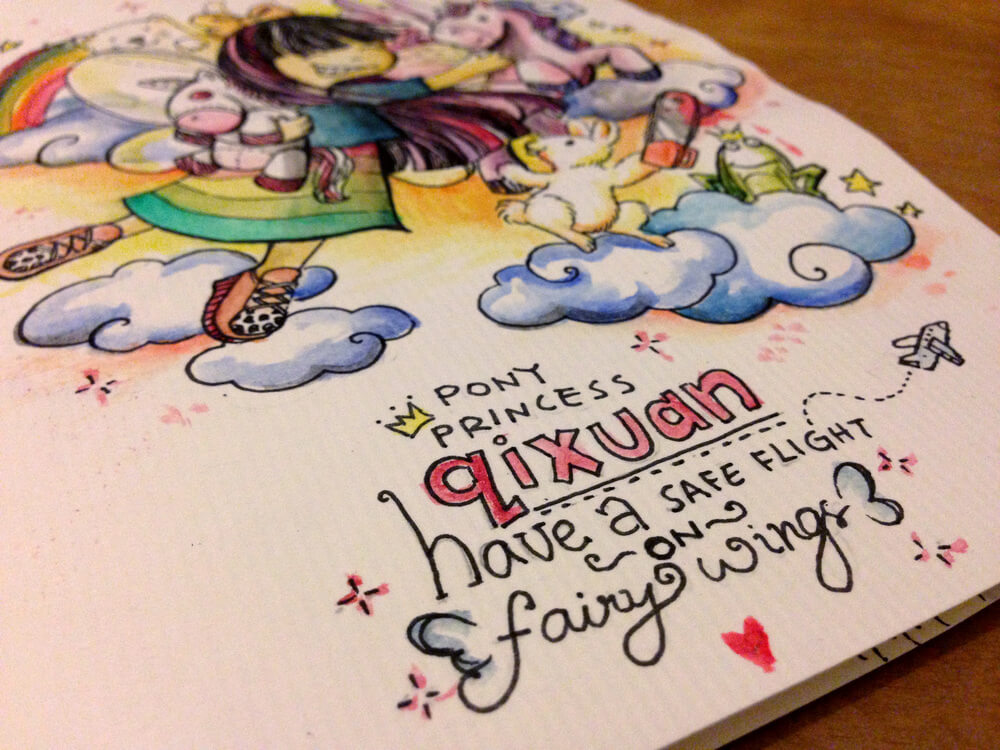 PONY
PRINCESS
qixuan
have a SAFE FLIGHT
ON
fairy wings